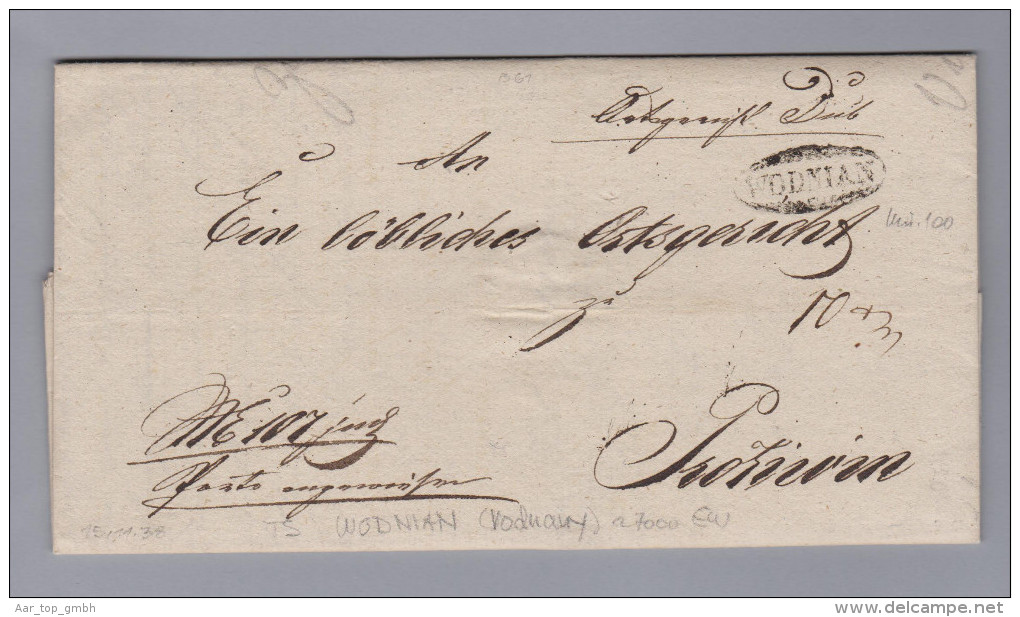 B61
Ortsgericht Dub
An
WODNIAN
Ein löbliches Ortsgericht
Mü.100
zu
10 x
N E 107 jud
Protiwin
Porto angewiesen
15.11.38 TS WODNIAN (Vodnany) ~7000 EW
Aar_top_gmbh
www.delcampe.net